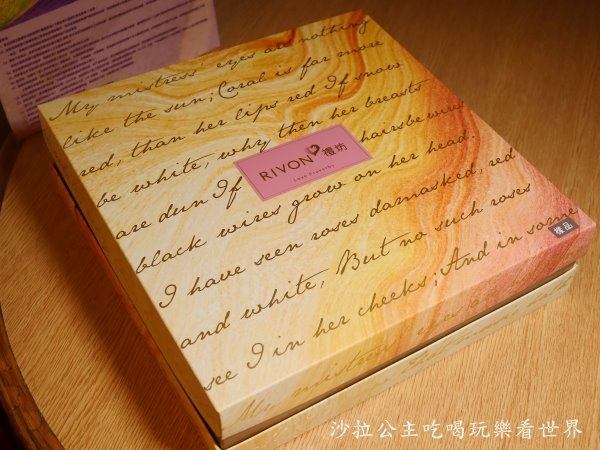 My mistress' eyes are nothing
like the sun; Coral is far more
red, than her lips red If snow
be white, why then her breasts
are dun If hairs be wires
black wires grow on her head.
I have seen roses damasked, red
and white, But no such roses
see I in her cheeks; And in some
RIVON 禮坊
Love Proverbs
樣品
My mistress' eyes are
沙拉公主吃喝玩樂看世界